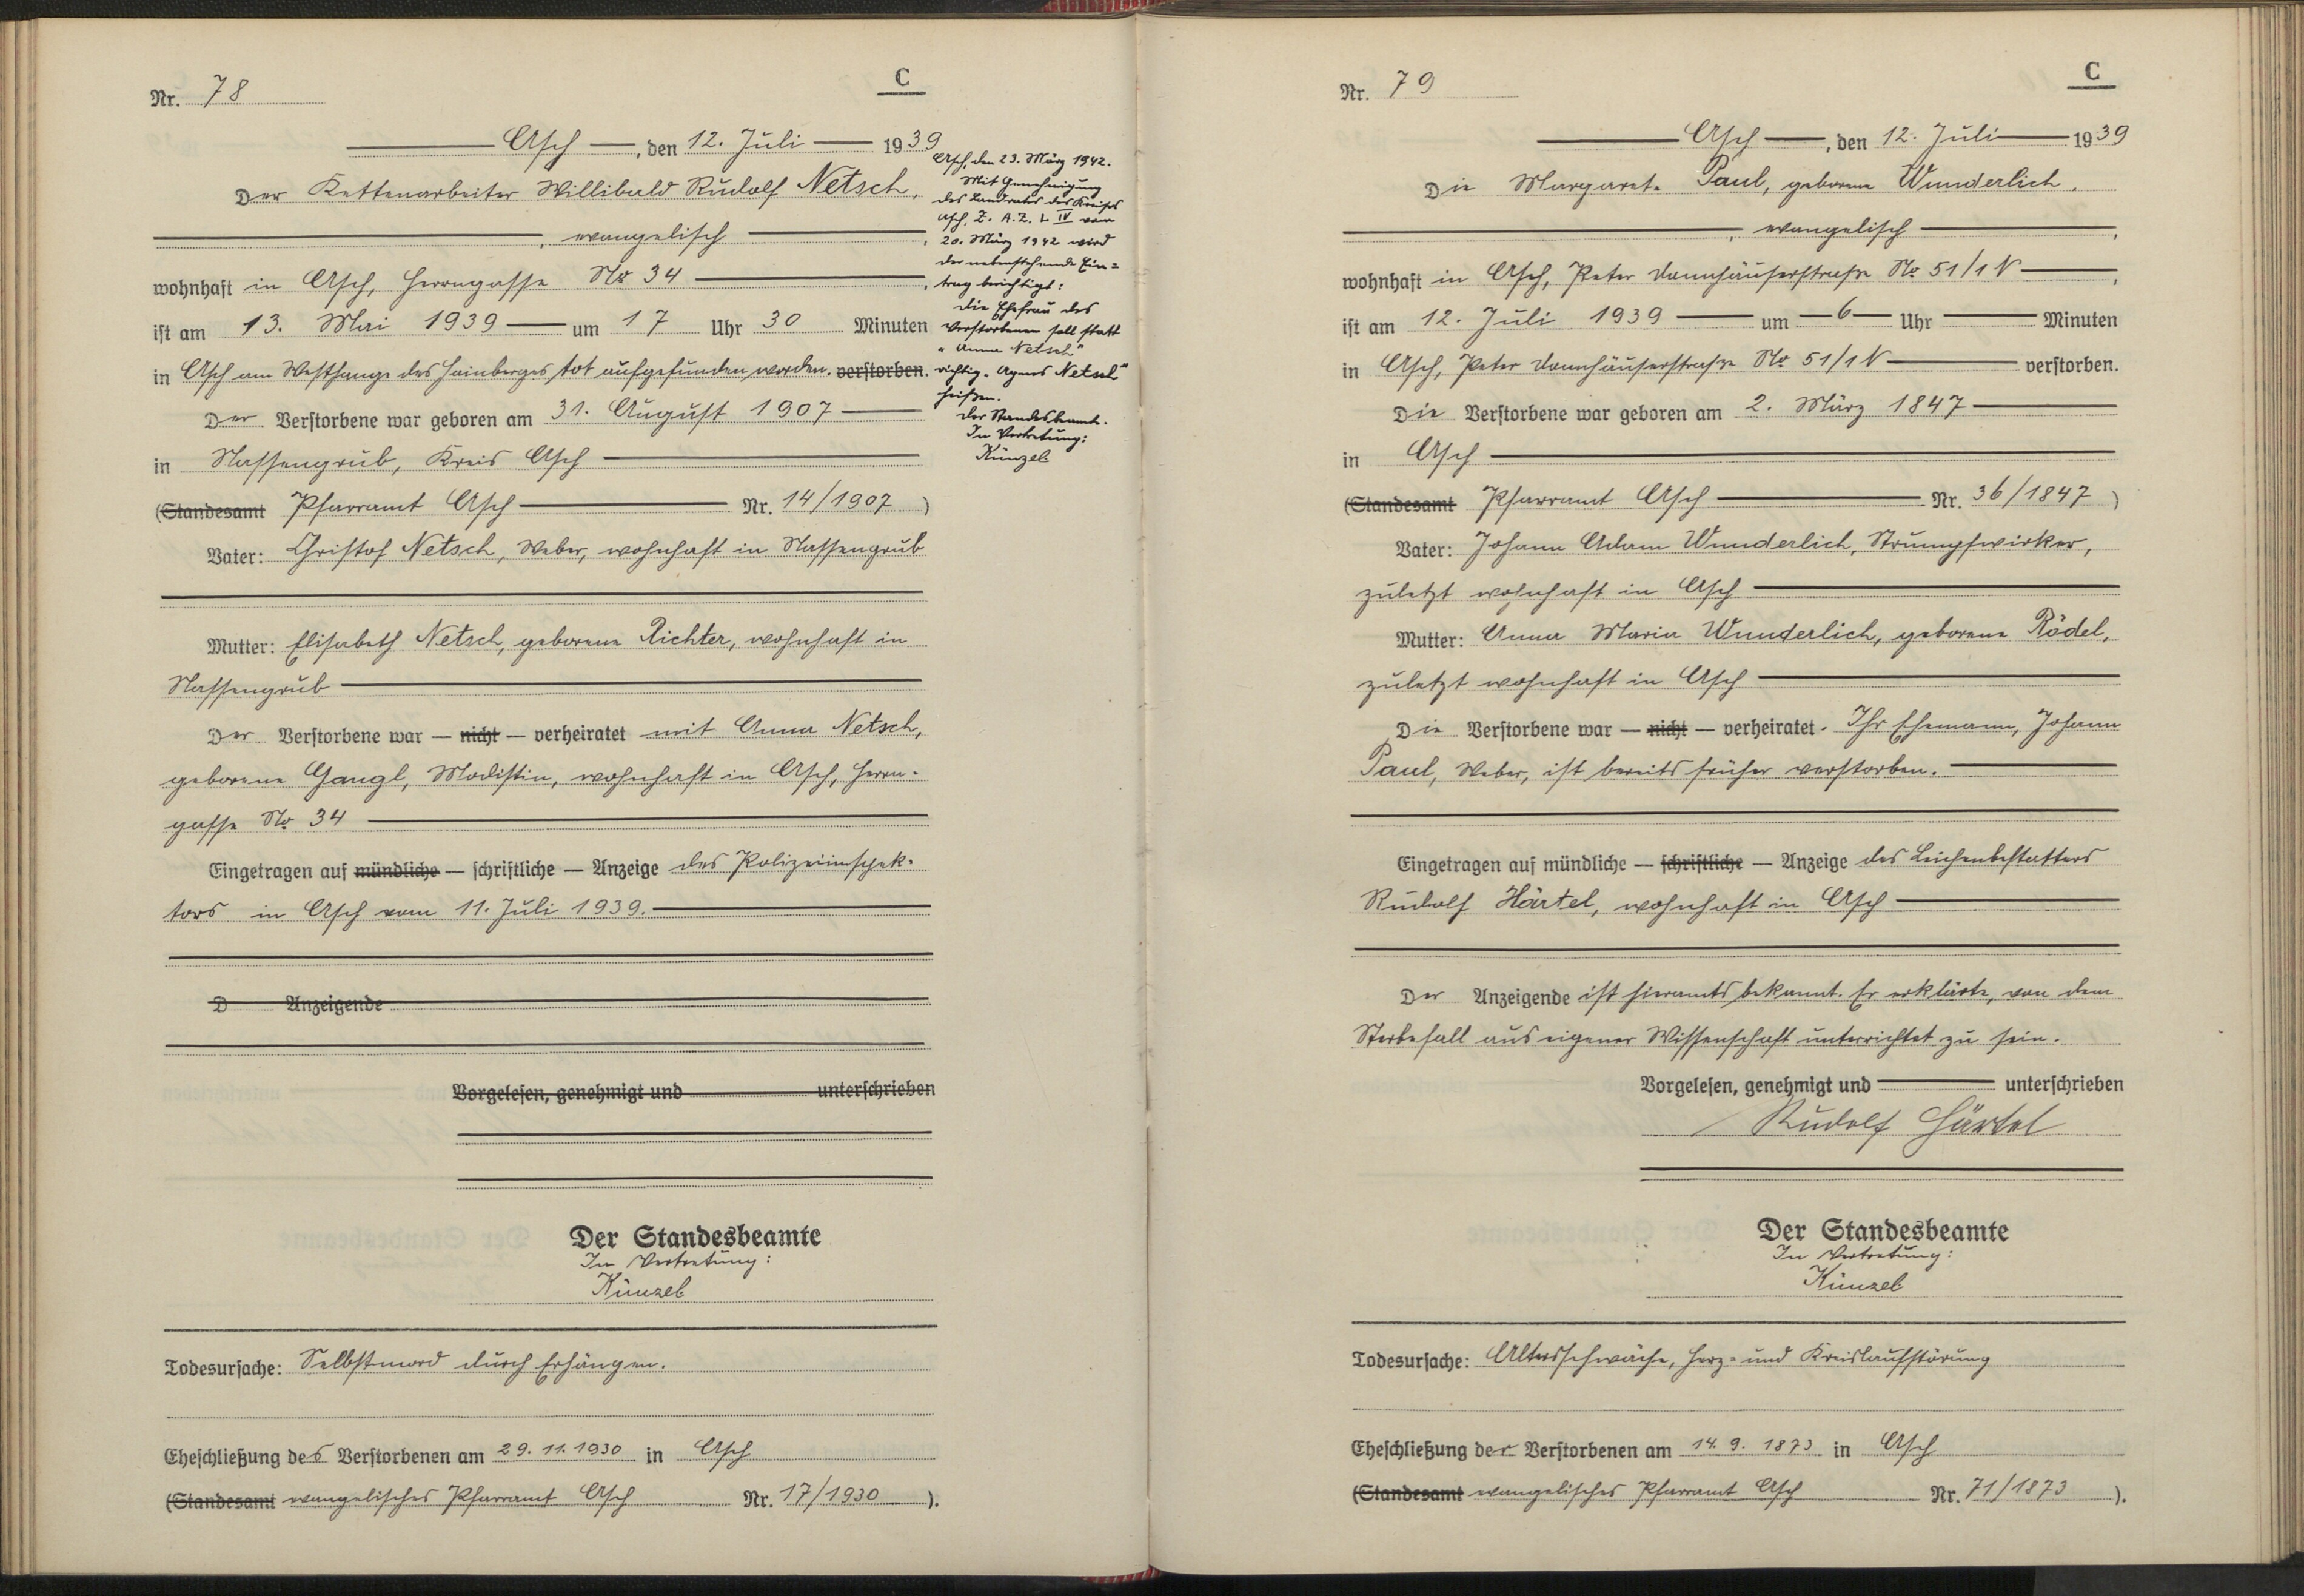 C
Nr. 78
Asch, den 12. Juli 1939
Der Kettenarbeiter Willibald Rudolf Netsch,
, evangelisch,
wohnhaft in Asch, Herrngasse No 34,
ist am 13. Mai 1939 um 17 Uhr 30 Minuten
in Asch am Westhange des Hainberges tot aufgefunden worden. verstorben.
Der Verstorbene war geboren am 31. August 1907
in Nassengrub, Kreis Asch
(Standesamt Pfarramt Asch Nr. 14/1907)
Vater: Christof Netsch, Weber, wohnhaft in Nassengrub
Mutter: Elisabeth Netsch, geborene Richter, wohnhaft in
Nassengrub
Der Verstorbene war — nicht — verheiratet mit Anna Netsch,
geborene Gangl, Modistin, wohnhaft in Asch, Herrn-
gasse No 34
Eingetragen auf mündliche — schriftliche — Anzeige des Polizeiinspek-
tors in Asch vom 11. Juli 1939.
D Anzeigende
Vorgelesen, genehmigt und unterschrieben
Der Standesbeamte
In Vertretung:
Künzel
Todesursache: Selbstmord durch Erhängen.
Eheschließung des Verstorbenen am 29. 11. 1930 in Asch
(Standesamt evangelisches Pfarramt Asch Nr. 17/1930).
Asch, den 23. März 1942.
Mit Genehmigung
des Landrates des Kreises
Asch, Z. A.Z. L IV vom
20. März 1942 wird
der nebenstehende Ein=
trag berichtigt:
Die Ehefrau des
Verstorbenen soll statt
"Anna Netsch"
richtig "Agnes Netsch"
heißen.
Der Standesbeamte.
In Vertretung:
Künzel
C
Nr. 79
Asch, den 12. Juli 1939
Die Margarete Paul, geborene Wunderlich,
, evangelisch,
wohnhaft in Asch, Peter Dannhäuserstraße No 51/1 N,
ist am 12. Juli 1939 um 6 Uhr Minuten
in Asch, Peter Dannhäuserstraße No 51/1 N verstorben.
Die Verstorbene war geboren am 2. März 1847
in Asch
(Standesamt Pfarramt Asch Nr. 36/1847)
Vater: Johann Adam Wunderlich, Strumpfwirker,
zuletzt wohnhaft in Asch
Mutter: Anna Maria Wunderlich, geborene Rödel,
zuletzt wohnhaft in Asch
Die Verstorbene war — nicht — verheiratet. Ihr Ehemann, Johann
Paul, Weber, ist bereits früher verstorben.
Eingetragen auf mündliche — schriftliche — Anzeige des Leichenbestatters
Rudolf Härtel, wohnhaft in Asch
Der Anzeigende ist hieramts bekannt. Er erklärte, von dem
Sterbefall aus eigener Wissenschaft unterrichtet zu sein.
Vorgelesen, genehmigt und unterschrieben
Rudolf Härtel
Der Standesbeamte
In Vertretung:
Künzel
Todesursache: Altersschwäche, Herz- und Kreislaufstörung
Eheschließung der Verstorbenen am 14. 9. 1873 in Asch
(Standesamt evangelisches Pfarramt Asch Nr. 71/1873).